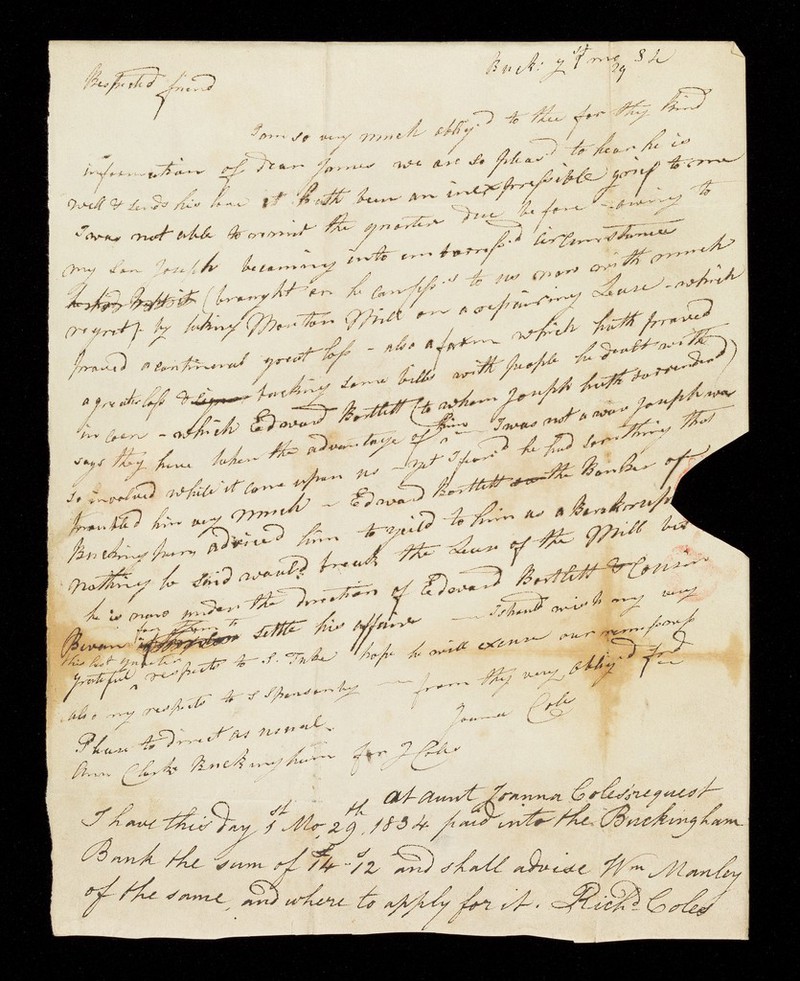 Buck: 1st mo 29 34
Respected friend
I am so very much oblig'd to thee for thy kind
information of dear James we are so pleas'd to hear he is
well & sends his love it hath been an inexpressible grief to me
I was not able to remit the quarter due before - owing to
my son Joseph becoming into embarress'd circumstances
(brought on he confess's to us now with much
regret) by taking Morton Mill on a repairing Lease - which
proved a continual great loss - also a farm which hath proved
a great loss & backing some bills with people he dealt with
in corn - which Edward Bartlett (to whom Joseph hath surrender'd)
says they have taken the advantage of him - I was not aware Joseph was
so involved while it came upon us - yet I fear'd he had something that
troubled him very much - Edward Bartlett the Banker of
Buckingham adviced him to yeild to him as a Bankrupt
nothing he said would break the Lease of the Mill but
he is now under the direction of Edward Bartlett & Cousin
Bevan for them to settle his affairs - I should wish my very
this last quarter
grateful respects to S. Tuke hope he will excuse our remissness
also my respects to S Sponsenby - from thy very oblig'd frd
Joanna Cole
Please to direct as usual.
Ann Clarke Buckingham for J Coles
at aunt Joanna Coles' request
I have this day 1st Mo. 29th, 1834 paid into the Buckingham
Bank the sum of £14-12s and shall advise Wm Manley
of the same, and where to apply for it. Richd. Coles